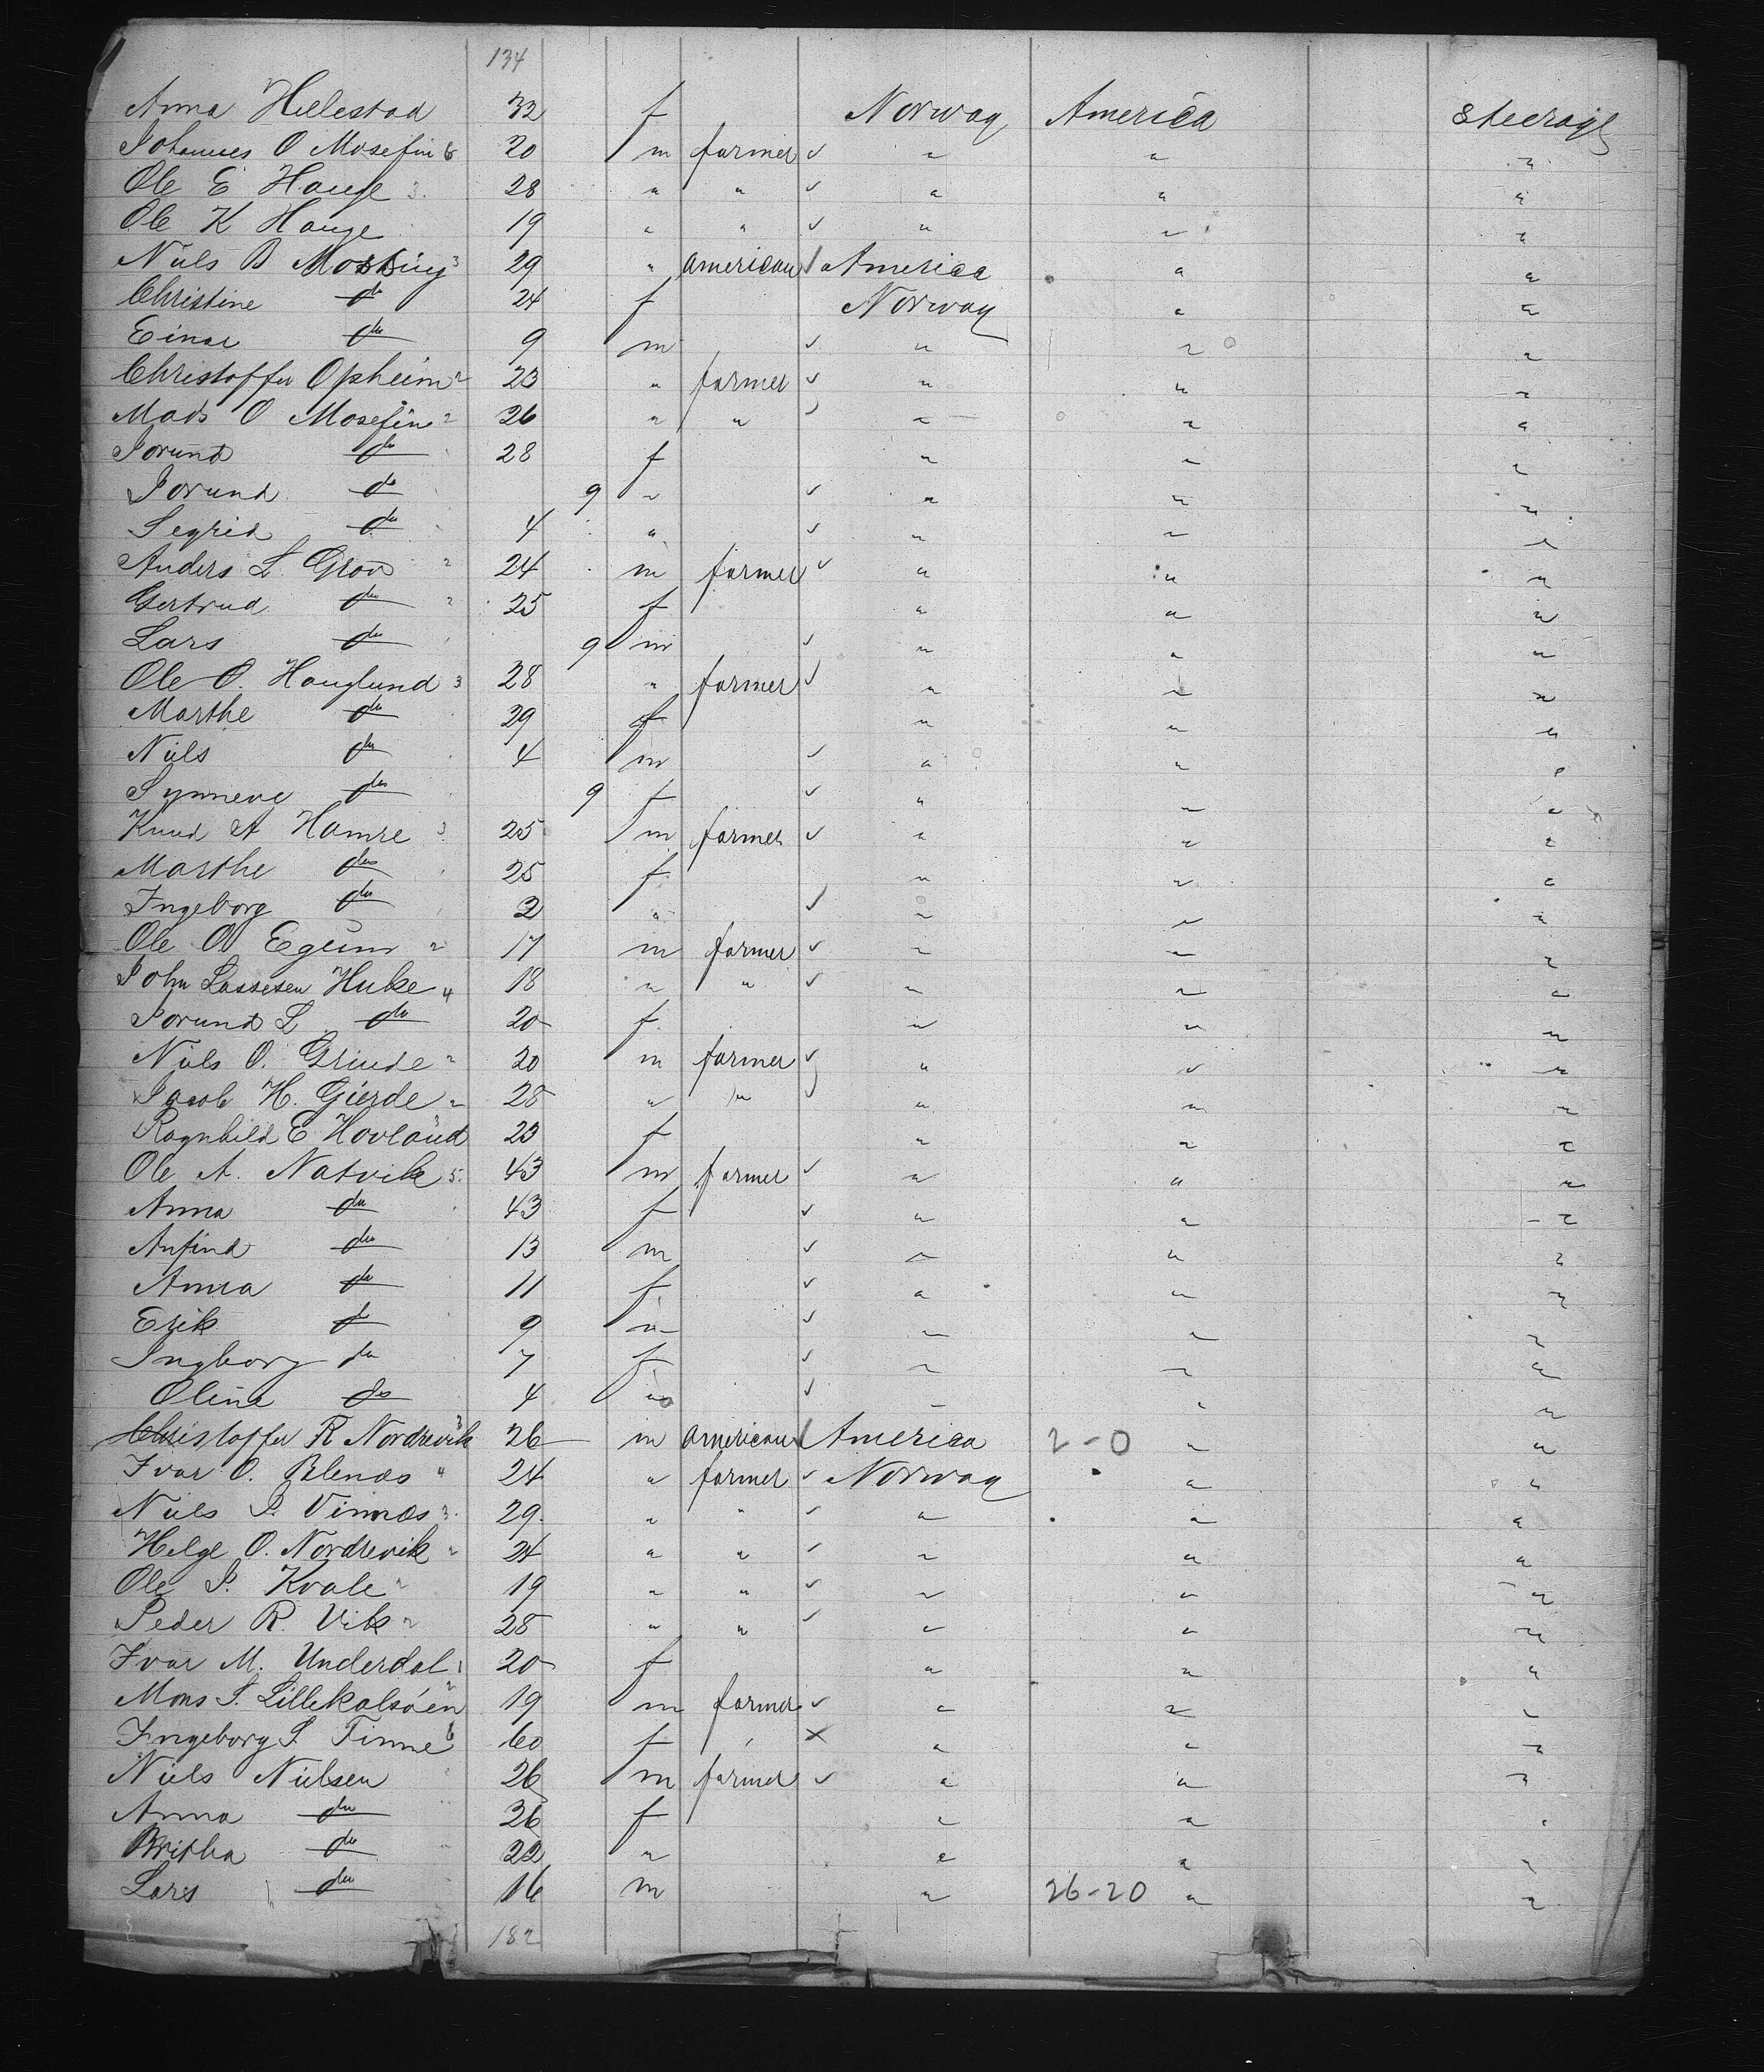 134
Anna Hillestad 32 f Norway America Steerage
Johannes O Mosefin 6 20 m farmer ✓ " " "
Ole E Hauge 3. 28 " " ✓ " " "
Ole K Hauge 19 " " ✓ " " "
Niels B 3 29 " american America " "
Christine do 24 f Norway " "
Einar do 9 m ✓ " " "
Christoffer Opheim 2 23 " farmer ✓ " " "
Mads O Mosefin 2 26 " " ✓ " " "
Jorund do 28 f " " "
Jorund do 9 " ✓ " " "
Segrid do 4 " ✓ " " "
Anders L Grov " 24 m farmer ✓ " " "
Gertrud do 25 f " " "
Lars do 9 m ✓ " " "
Ole O. Hauglund 3 28 " farmer ✓ " " "
Marthe do 29 f " " "
Niels do 4 m ✓ " " "
Synneve do 9 f ✓ " " "
Knud A Hamre 3 25 m farmer ✓ " " "
Marthe do 25 f " " "
Ingeborg do 2 " ✓ " " "
Ole O Egum 2 17 m farmer ✓ " " "
John Lassesen Huke 4 18 " " ✓ " " "
Jorund L do 20 f " " "
Niels O. Grinde 2 20 m farmer ✓ " " "
Jacob H. Gierde 2 28 " " ✓ " " "
Ragnhild E Hovland 23 f " " "
Ole A. Natvik 5. 43 m farmer ✓ " " "
Anna do 43 f ✓ " " "
Anfind do 13 m ✓ " " "
Anna do 11 f ✓ " " "
Erik do 9 m ✓ " " "
Ingborg do 7 f ✓ " " "
Olina do 4 " ✓ " " "
Christoffer R Nordrevik 3 26 m american America 2-0 " "
Ivar O. Blenas 4 24 " farmer ✓ Norway " "
Niels P. Vinnas 3. 29. " " ✓ " " "
Helge O. Nordrevik 2 24 " " ✓ " " "
Ole P. Kvale 2 19 " " ✓ " " "
Peder R. Vik 2 28 " " ✓ " " "
Ivar M. Underdal 1 20 f " " "
Mons S. Lillekalsöen 2 19 m farmer ✓ " " "
Ingeborg S Finne 6 60 f × " " "
Niels Nielsen 26 m farmer ✓ " " "
Anna do 26 f " " "
Britha do 22 " " " "
Lars do 16 m " 26-20 " "
182